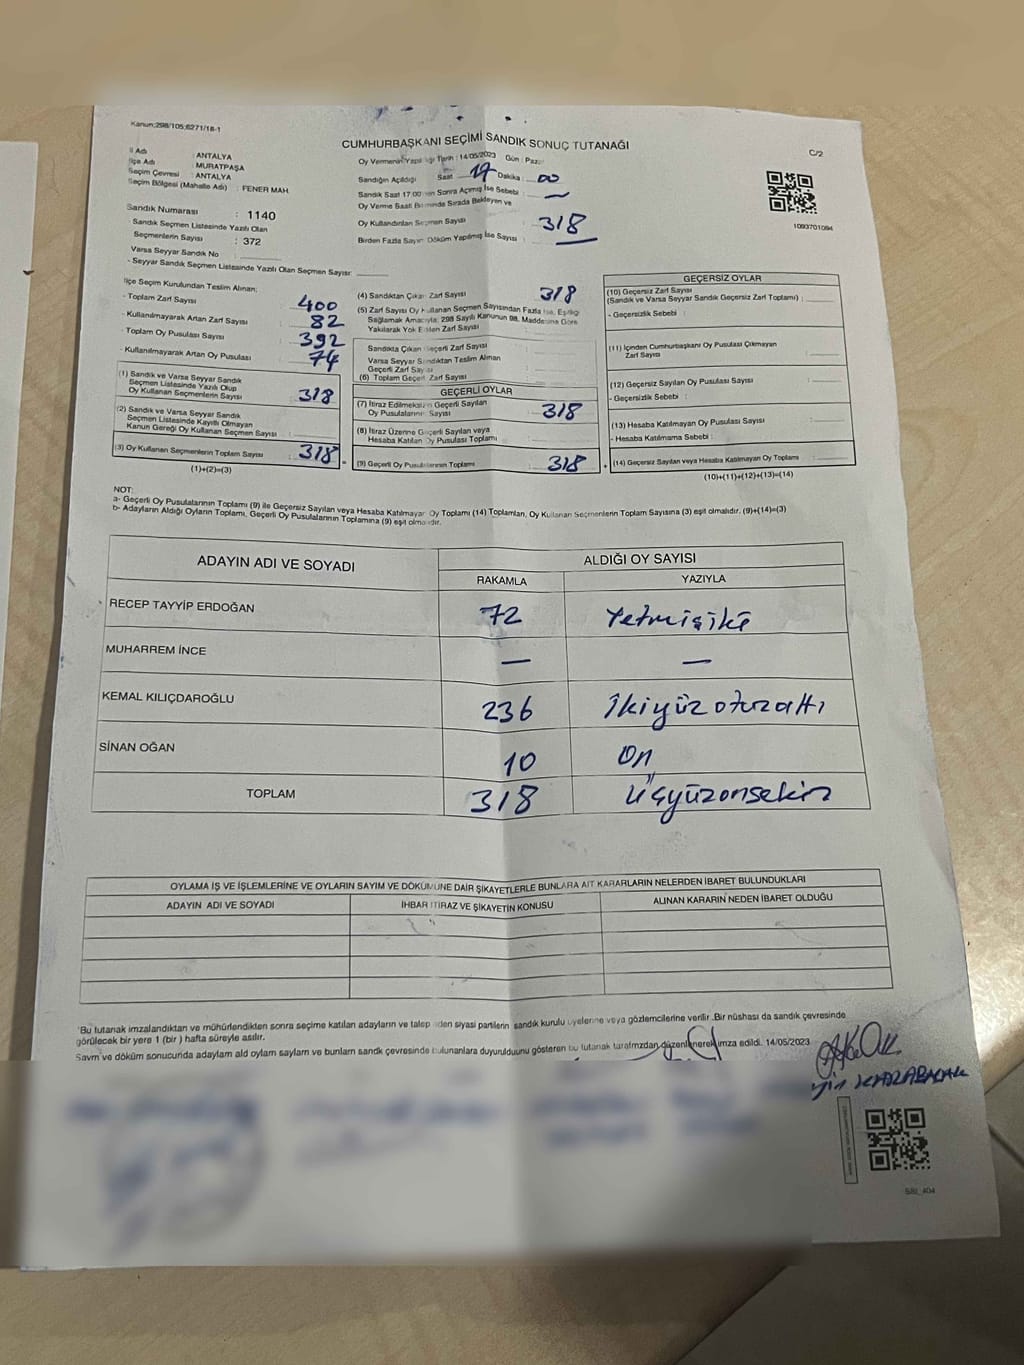 Kanun:298/105;6271/18-1
CUMHURBAŞKANI SEÇİMİ SANDIK SONUÇ TUTANAĞI
C/2
İl Adı : ANTALYA
İlçe Adı : MURATPAŞA
Seçim Çevresi : ANTALYA
Seçim Bölgesi (Mahalle Adı) : FENER MAH.
Sandık Numarası : 1140
Sandık Seçmen Listesinde Yazılı Olan
Seçmenlerin Sayısı : 372
Varsa Seyyar Sandık No
- Seyyar Sandık Seçmen Listesinde Yazılı Olan Seçmen Sayısı:
Oy Vermenin Yapıldığı Tarih : 14/05/2023 Gün : Pazar
Sandığın Açıldığı Saat 17 Dakika : 00
Sandık Saat 17.00'den Sonra Açımış İse Sebebi : —
Oy Verme Saati Bitiminde Sırada Bekleyen ve
Oy Kullandırılan Seçmen Sayısı : 318
Birden Fazla Sayım Döküm Yapılmış İse Sayısı : —
1093701094
İlçe Seçim Kurulundan Teslim Alınan:
- Toplam Zarf Sayısı : 400
- Kullanılmayarak Artan Zarf Sayısı : 82
- Toplam Oy Pusulası Sayısı : 392
- Kullanılmayarak Artan Oy Pusulası : 74
(1) Sandık ve Varsa Seyyar Sandık
Seçmen Listesinde Yazılı Olup
Oy Kullanan Seçmenlerin Sayısı : 318
(2) Sandık ve Varsa Seyyar Sandık
Seçmen Listesinde Kayıtlı Olmayan
Kanun Gereği Oy Kullanan Seçmen Sayısı :
(3) Oy Kullanan Seçmenlerin Toplam Sayısı : 318
(1)+(2)=(3)
(4) Sandıktan Çıkan Zarf Sayısı : 318
(5) Zarf Sayısı Oy Kullanan Seçmen Sayısından Fazla İse, Eşitliği
Sağlamak Amacıyla; 298 Sayılı Kanunun 98. Maddesine Göre
Yakılarak Yok Edilen Zarf Sayısı :
Sandıkta Çıkan Geçerli Zarf Sayısı :
Varsa Seyyar Sandıktan Teslim Alınan
Geçerli Zarf Sayısı
(6) Toplam Geçerli Zarf Sayısı :
GEÇERLİ OYLAR
(7) İtiraz Edilmeksizin Geçerli Sayılan
Oy Pusulalarının Sayısı : 318
(8) İtiraz Üzerine Geçerli Sayılan veya
Hesaba Katılan Oy Pusulası Toplamı :
(9) Geçerli Oy Pusulalarının Toplamı : 318
GEÇERSİZ OYLAR
(10) Geçersiz Zarf Sayısı
(Sandık ve Varsa Seyyar Sandık Geçersiz Zarf Toplamı) :
- Geçersizlik Sebebi :
(11) İçinden Cumhurbaşkanı Oy Pusulası Çıkmayan
Zarf Sayısı :
(12) Geçersiz Sayılan Oy Pusulası Sayısı :
- Geçersizlik Sebebi :
(13) Hesaba Katılmayan Oy Pusulası Sayısı :
- Hesaba Katılmama Sebebi :
(14) Geçersiz Sayılan veya Hesaba Katılmayan Oy Toplamı :
(10)+(11)+(12)+(13)=(14)
NOT:
a- Geçerli Oy Pusulalarının Toplamı (9) ile Geçersiz Sayılan veya Hesaba Katılmayan Oy Toplamı (14) Toplamları, Oy Kullanan Seçmenlerin Toplam Sayısına (3) eşit olmalıdır. (9)+(14)=(3)
b- Adayların Aldığı Oyların Toplamı, Geçerli Oy Pusulalarının Toplamına (9) eşit olmalıdır.
ADAYIN ADI VE SOYADI
ALDIĞI OY SAYISI
RAKAMLA YAZIYLA
RECEP TAYYİP ERDOĞAN 72 Yetmişiki
MUHARREM İNCE — —
KEMAL KILIÇDAROĞLU 236 İkiyüzotuzaltı
SİNAN OĞAN 10 On
TOPLAM 318 Üçyüzonsekiz
OYLAMA İŞ VE İŞLEMLERİNE VE OYLARIN SAYIM VE DÖKÜMÜNE DAİR ŞİKAYETLERLE BUNLARA AİT KARARLARIN NELERDEN İBARET BULUNDUKLARI
ADAYIN ADI VE SOYADI İHBAR İTİRAZ VE ŞİKAYETİN KONUSU ALINAN KARARIN NEDEN İBARET OLDUĞU
*Bu tutanak imzalandıktan ve mühürlendikten sonra seçime katılan adayların ve talep eden siyasi partilerin sandık kurulu üyelerine veya gözlemcilerine verilir .Bir nüshası da sandık çevresinde
görülecek bir yere 1 (bir ) hafta süreyle asılır.
Sayım ve döküm sonucunda adayların ald oyların sayıların ve bunların sandık çevresinde bulunanlara duyurulduunu gösteren bu tutanak tarafımızdan düzenlenerek imza edildi. 14/05/2023
KARABACAK
SBI_404